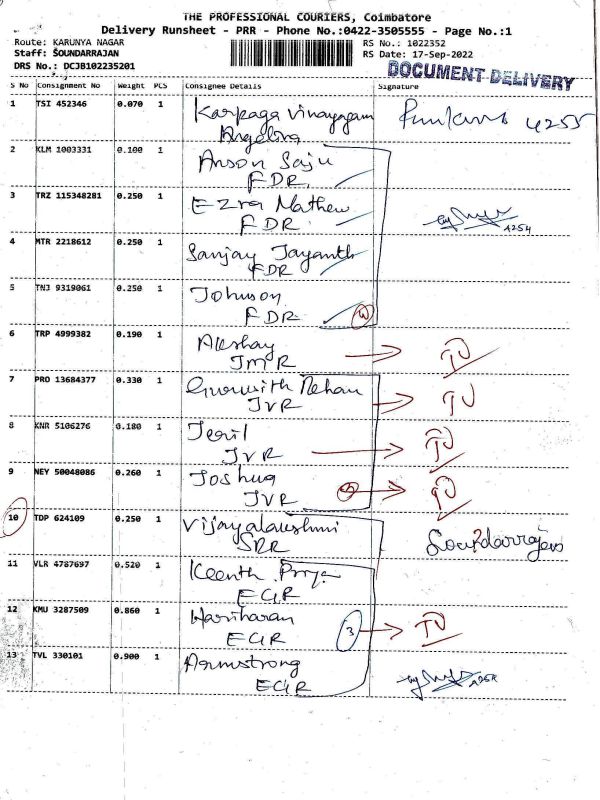 THE PROFESSIONAL COURIERS, Coimbatore
Delivery Runsheet - PRR - Phone No.:0422-3505555 - Page No.:1
Route: KARUNYA NAGAR
RS No.: 1022352
Staff: SOUNDARRAJAN
RS Date: 17-Sep-2022
DRS No.: DCJB102235201
DOCUMENT DELIVERY
S No Consignment No Weight PCS Consignee Details Signature
1 TSI 452346 0.070 1 Karpaga Vinayagam 4255
Angelina
2 KLM 1003331 0.100 1 Anson Saju
FDR
3 TRZ 115348281 0.250 1 Ezra Mathew
FDR 4254
4 MTR 2218612 0.250 1 Sanjay Jayanth
FDR
5 TNJ 9319061 0.250 1 Johnson
FDR 4
6 TRP 4999382 0.190 1 Akshay
JMR
7 PRO 13684377 0.330 1 Rehan
JVR
8 KNR 5106276 0.180 1 Jeril
JVR
9 NEY 50048086 0.260 1 Joshua
JVR
10 TDP 624109 0.250 1 Vijayalakshmi Soundarrajan
SRR
11 VLR 4787697 0.520 1 Keenth Priya
EGR
12 KMU 3287509 0.860 1 Hariharan
EGR 3
13 TVL 330101 0.900 1 Armstrong
EGR